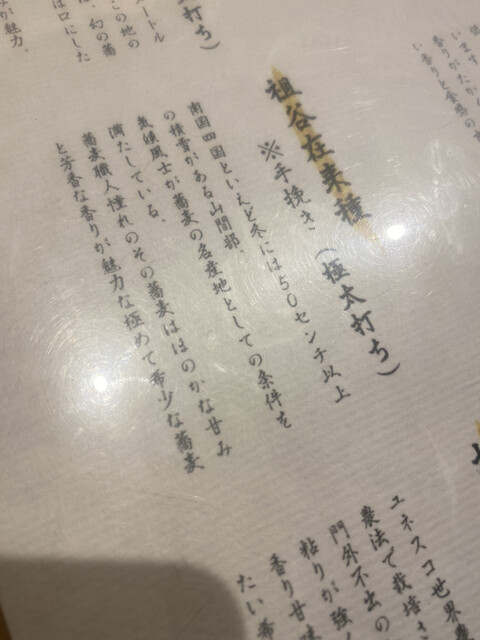 います
香りがたか
い香りと食感の
祖谷在来種
※手挽き（極太打ち）
南国四国といえど冬には50センチ以上
の積雪がある山間部、
気候風土が蕎麦の名産地としての条件を
満たしている。
蕎麦職人憧れのその蕎麦はほのかな甘み
と芳香な香りが魅力な極めて希少な蕎麦
打ち）
ートル
この地の
、幻の蕎
は口にした
が魅力。
ユネスコ世界農
農法で栽培さ
門外不出の
粘りが強
香り甘味
たい希